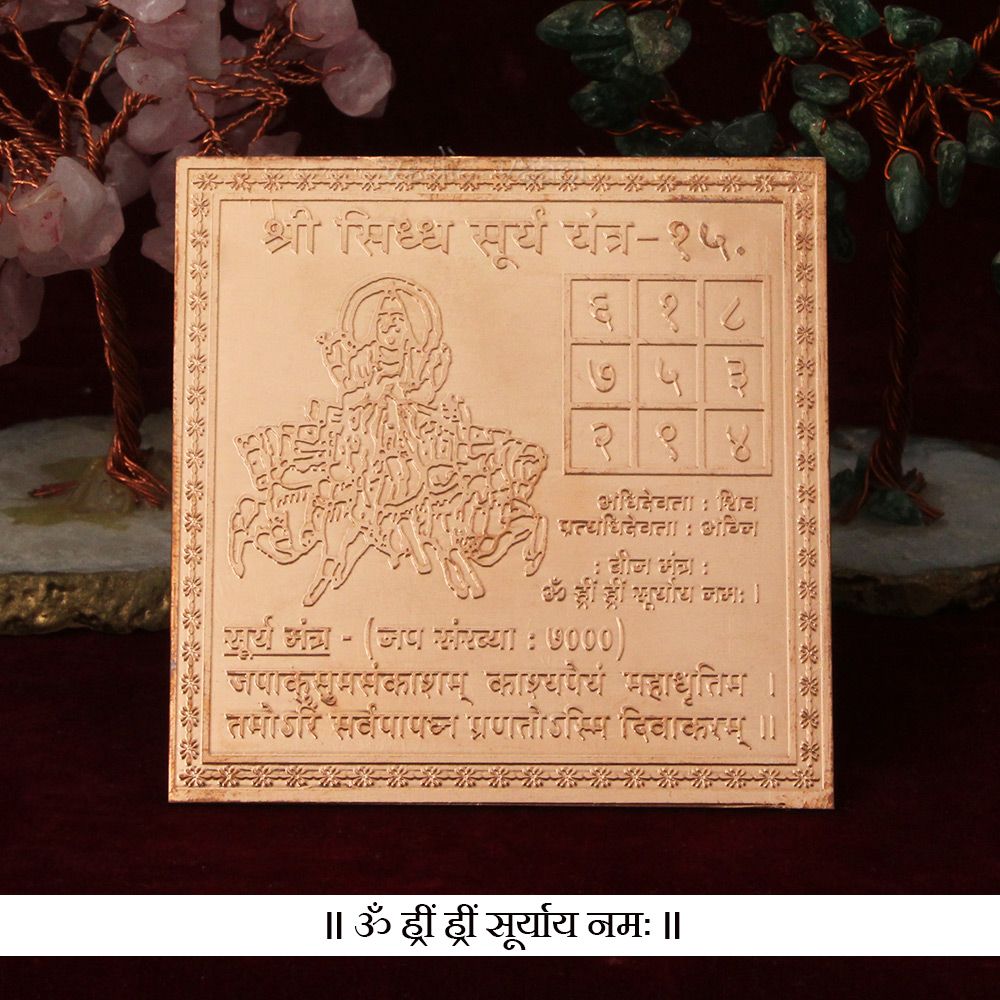 श्री सिध्ध सूर्य यंत्र - १५.
६ १ ८
७ ५ ३
२ ९ ४
अधिदेवता : शिव
प्रत्यधिदेवता : अग्नि
: बीज मंत्र :
ॐ ह्रीं ह्रीं सूर्याय नमः ।
सूर्य मंत्र - (जप संख्या : ७०००)
जपाकुसुमसंकाशम् काश्यपेयं महाधृतिम ।
तमोऽरिं सर्वपापघ्न प्रणतोऽस्मि दिवाकरम् ॥
॥ ॐ ह्रीं ह्रीं सूर्याय नमः ॥